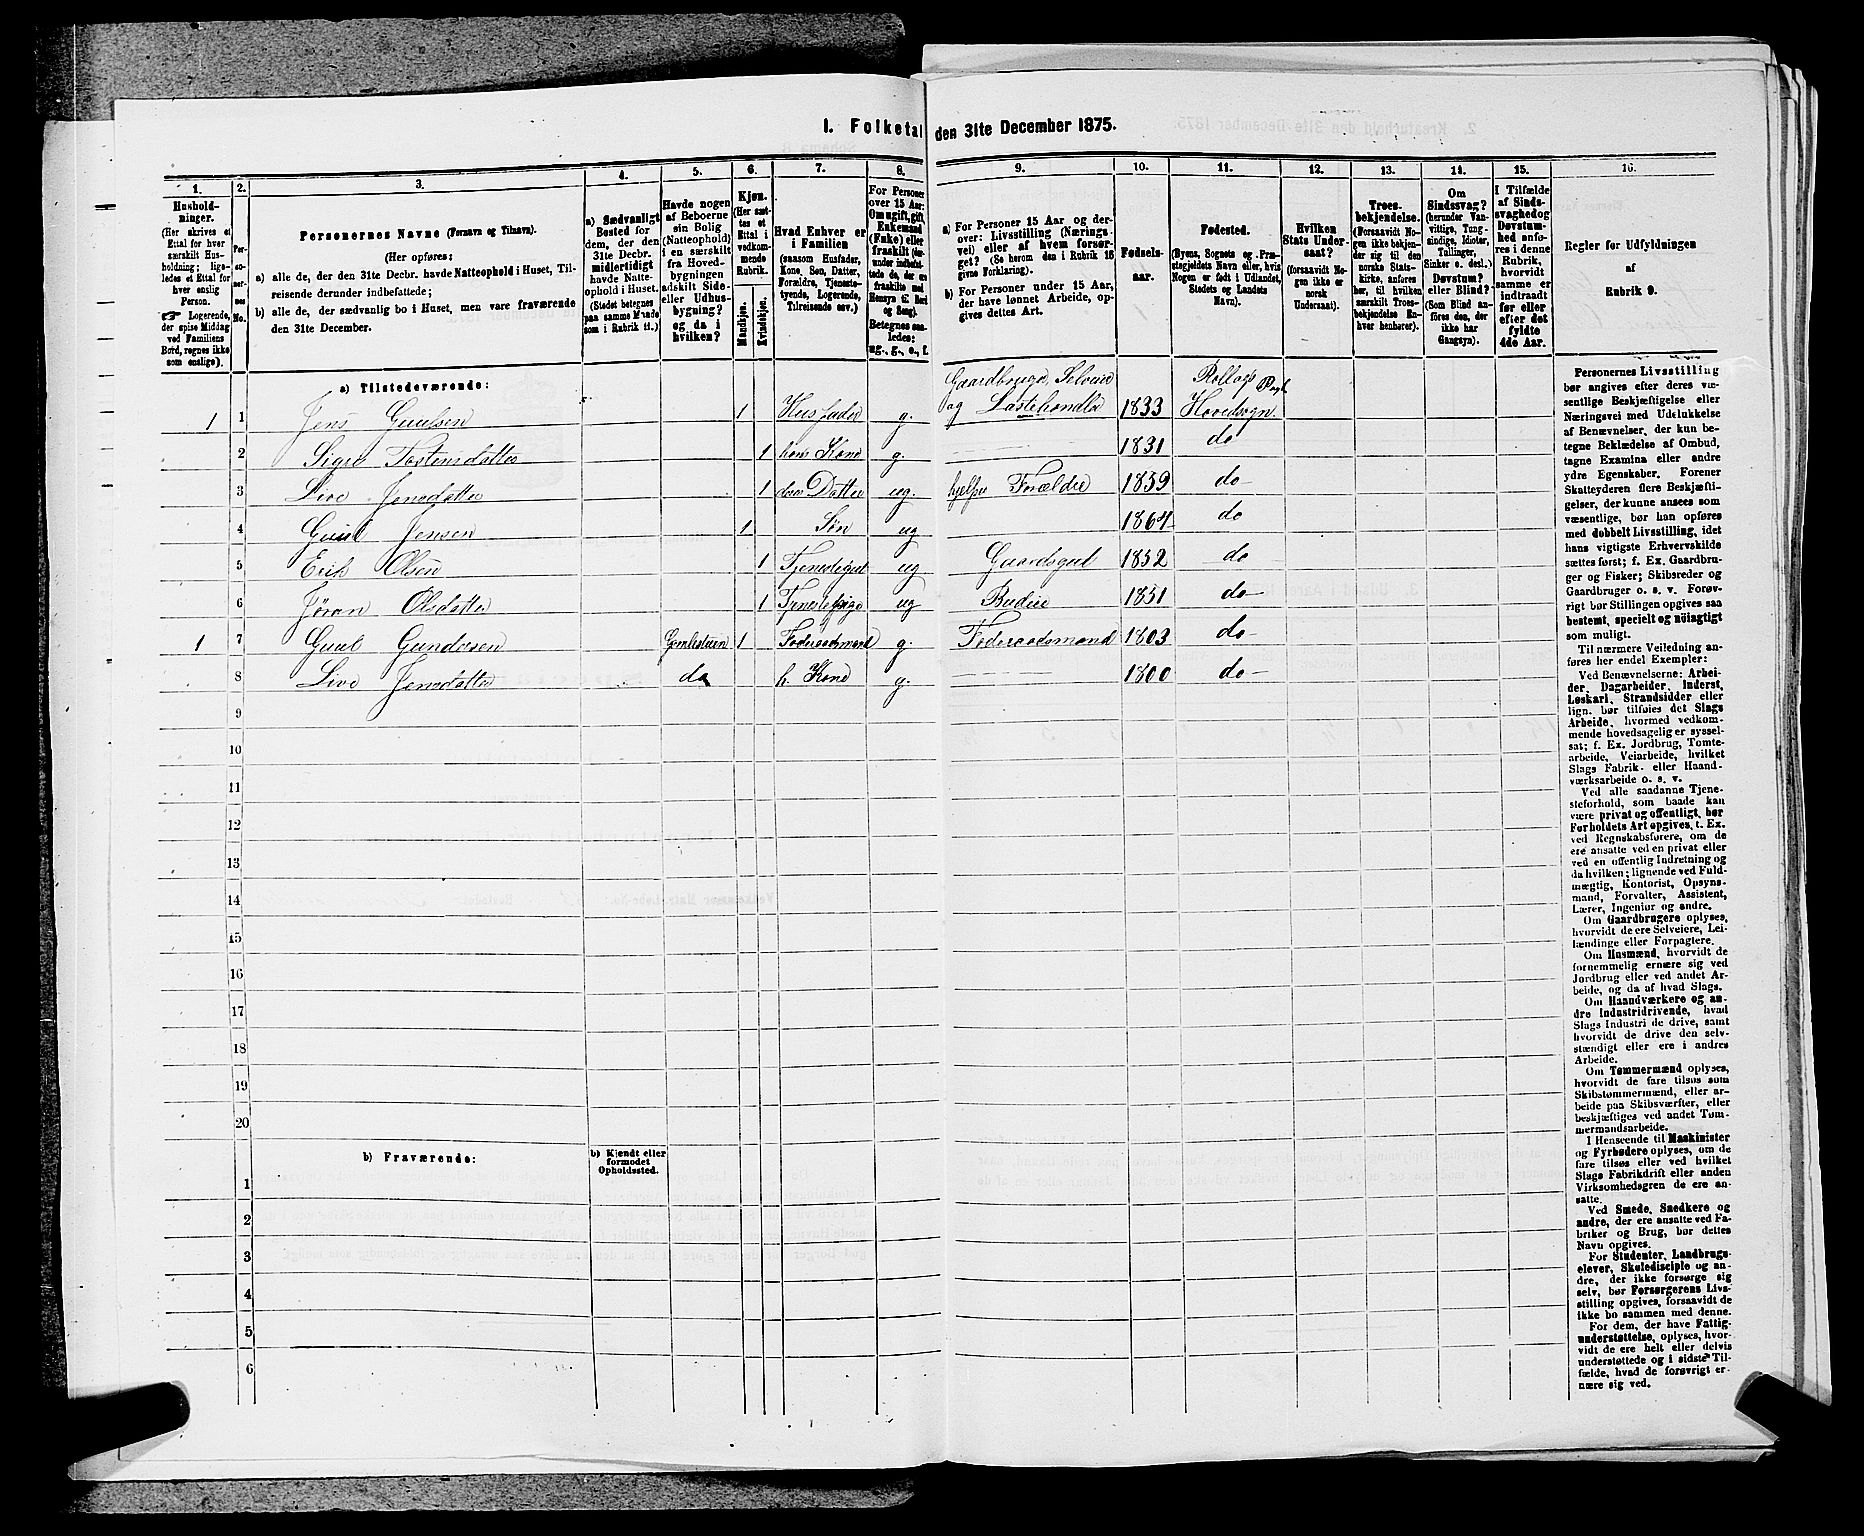 1. Folketal den 31te December 1875.
1. 2. 3. 4. 5. 6. 7. 8. 9. 10. 11. 12. 13. 14. 15. 16.
Hushold-
ninger.
(Her skrives et
Ettal for hver
særskilt Hus-
holdning; lige-
ledes et Ettal for
hver enslig
Person.
☞ Logerende,
der spise Middag
ved Familiens
Bord, regnes ikke
som enslige).
Per-
so-
ner-
nes
No.
Personernes Navne (Fornavn og Tilnavn).
(Her opføres:
a) alle de, der den 31te Decbr. havde Natteophold i Huset, Til-
reisende derunder indbefattede;
b) alle de, der sædvanlig bo i Huset, men vare fraværende
den 31te December.
a) Sædvanligt
Bosted for
dem, der den
31te Decbr.
midlertidigt
havde Natte-
ophold i Huset.
(Stedet betegnes
paa samme Maade
som i Rubrik 11.)
Havde nogen
af Beboerne
sin Bolig
(Natteophold)
i en særskilt
fra Hoved-
bygningen
adskilt Side-
eller Udhus-
bygning?
og da i
hvilken?
Kjøn.
(Her sæt-
tes et
Ettal i
vedkom-
mende
Rubrik.
Mandkjøn.
Kvindekjøn.
Hvad Enhver er
i Familien
(saasom Husfader,
Kone, Søn, Datter,
Forældre, Tjeneste-
tyende, Logerende,
Tilreisende osv.)
For Personer
over 15 Aar:
Om ugift, gift,
Enkemand
(Enke) eller
fraskilt (der-
under indbefat-
tede de, der ere
fraskilte med
Hensyn til Bord
og Seng).
Betegnes saa-
ledes:
ug., g., e., f.
a) For Personer 15 Aar og der-
over: Livsstilling (Nærings-
vei) eller af hvem forsør-
get? (Se herom den i Rubrik 16
givne Forklaring).
b) For Personer under 15 Aar,
der have lønnet Arbeide, op-
gives dettes Art.
Fødsels-
aar.
Fødested.
(Byens, Sognets og Præ-
stegjeldets Navn eller, hvis
Nogen er født i Udlandet,
Stedets og Landets
Navn).
Hvilken
Stats Under-
saat?
(forsaavidt No-
gen ikke er
norsk
Undersaat).
Troes-
bekjendelse.
(Forsaavidt No-
gen ikke bekjen-
der sig til den
norske Stats-
kirke, anføres
her, til hvilken
særskilt Troes-
bekjendelse En-
hver henhører).
Om
Sindssvag?
(herunder Van-
vittige, Tung-
sindige, Idioter,
Tullinger,
Sinker o. desl.)
Døvstum?
eller Blind?
(Som Blind an-
føres den, der
ikke har
Gangsyn).
I Tilfælde
af Sinds-
svaghed og
Døvstum-
hed anfø-
res i denne
Rubrik,
hvorvidt
samme er
indtraadt
før eller
efter det
fyldte
4de Aar.
Regler for Udfyldningen
af
Rubrik 9.
a) Tilstedeværende:
1 1 Jens Guulsen 1 Husfader g. Gaardbruger, Selveier og Lastehandler 1833 Rollags Pgl. Hovedsogn.
2 Sigri Tostensdatter 1 hans Kone g. 1831 do
3 Live Jensdatter 1 deres Datter ug. hjelper Forældre 1859 do
4 Guul Jensen 1 Søn ug 1864 do
5 Erik Olsen 1 Tjenestegut ug Gaardsgut 1852 do
6 Jøran Olsdatter 1 Tjenestepige ug Budeie 1851 do
1 7 Guul Gundersen Gamlestuen 1 Føderaadsmand g. Føderaadsmand 1803 do
8 Live Jensdatter do h. Kone g. 1800 do
9
10
11
12
13
14
15
16
17
18
19
20
b) Fraværende:
b) Kjendt eller
formodet
Opholdssted.
1
2
3
4
5
6
Personernes Livsstilling
bør angives efter deres væ-
sentlige Beskjæftigelse eller
Næringsvei med Udelukkelse
af Benævnelser, der kun be-
tegne Beklædelse af Ombud,
tagne Examina eller andre
ydre Egenskaber. Forener
Skatteyderen flere Beskjæfti-
gelser, der kunne ansees som
væsentlige, bør han opføres
med dobbelt Livsstilling, idet
hans vigtigste Erhvervskilde
sættes først; f. Ex. Gaardbru-
ger og Fisker; Skibsreder og
Gaardbruger o. s. v. Forøv-
rigt bør Stillingen opgives saa
bestemt, specielt og nøiagtigt
som muligt.
Til nærmere Veiledning an-
føres her endel Exempler:
Ved Benævnelserne: Arbei-
der, Dagarbeider, Inderst,
Løskarl, Strandsidder eller
lign. bør tilføies det Slags
Arbeide, hvormed vedkom-
mende hovedsagelig er syssel-
sat; f. Ex. Jordbrug, Tomte-
arbeide, Veiarbeide, hvilket
Slags Fabrik- eller Haand-
værksarbeide o. s. v.
Ved alle saadanne Tjene-
steforhold, som baade kan
være privat og offentligt, bør
Forholdets Art opgives, t. Ex.
ved Regnskabsførere, om de
ere ansatte ved en privat eller
ved en offentlig Indretning og
da hvilken; lignende ved Fuld-
mægtig, Kontorist, Opsyns-
mand, Forvalter, Assistent,
Lærer, Ingeniør og andre.
Om Gaardbrugere oplyses,
hvorvidt de ere Selveiere, Lei-
lændinge eller Forpagtere.
Om Husmænd, hvorvidt de
fornemmelig ernære sig ved
Jordbrug eller ved andet Ar-
beide, og da af hvad Slags.
Om Haandværkere og an-
dre Industridrivende, hvad
Slags Industri de drive, samt
hvorvidt de drive den selv-
stændigt eller ere i andres
Arbeide.
Om Tømmermænd oplyses,
hvorvidt de fare tilsøs som
Skibstømmermænd, eller ar-
beide paa Skibsværfter, eller
beskjæftiges ved andet Tøm-
mermandsarbeide.
I Henseende til Maskinister
og Fyrbødere oplyses, om de
fare tilsøs eller ved hvilket
Slags Fabrikdrift eller anden
Virksomhedsgren de ere an-
satte.
Ved Smede, Snedkere og
andre, der ere ansatte ved Fa-
briker og Brug, bør dettes
Navn opgives.
For Studenter, Landbrugs-
elever, Skoledisciple og an-
dre, der ikke forsørge sig
selv, bør Forsørgerens Livs-
stilling opgives, forsaavidt de
ikke bo sammen med denne.
For dem, der have Fattig-
understøttelse, oplyses, hvor-
vidt de ere helt eller delvis
understøttede og i sidste Til-
fælde, hvad de forøvrigt er-
nære sig ved.